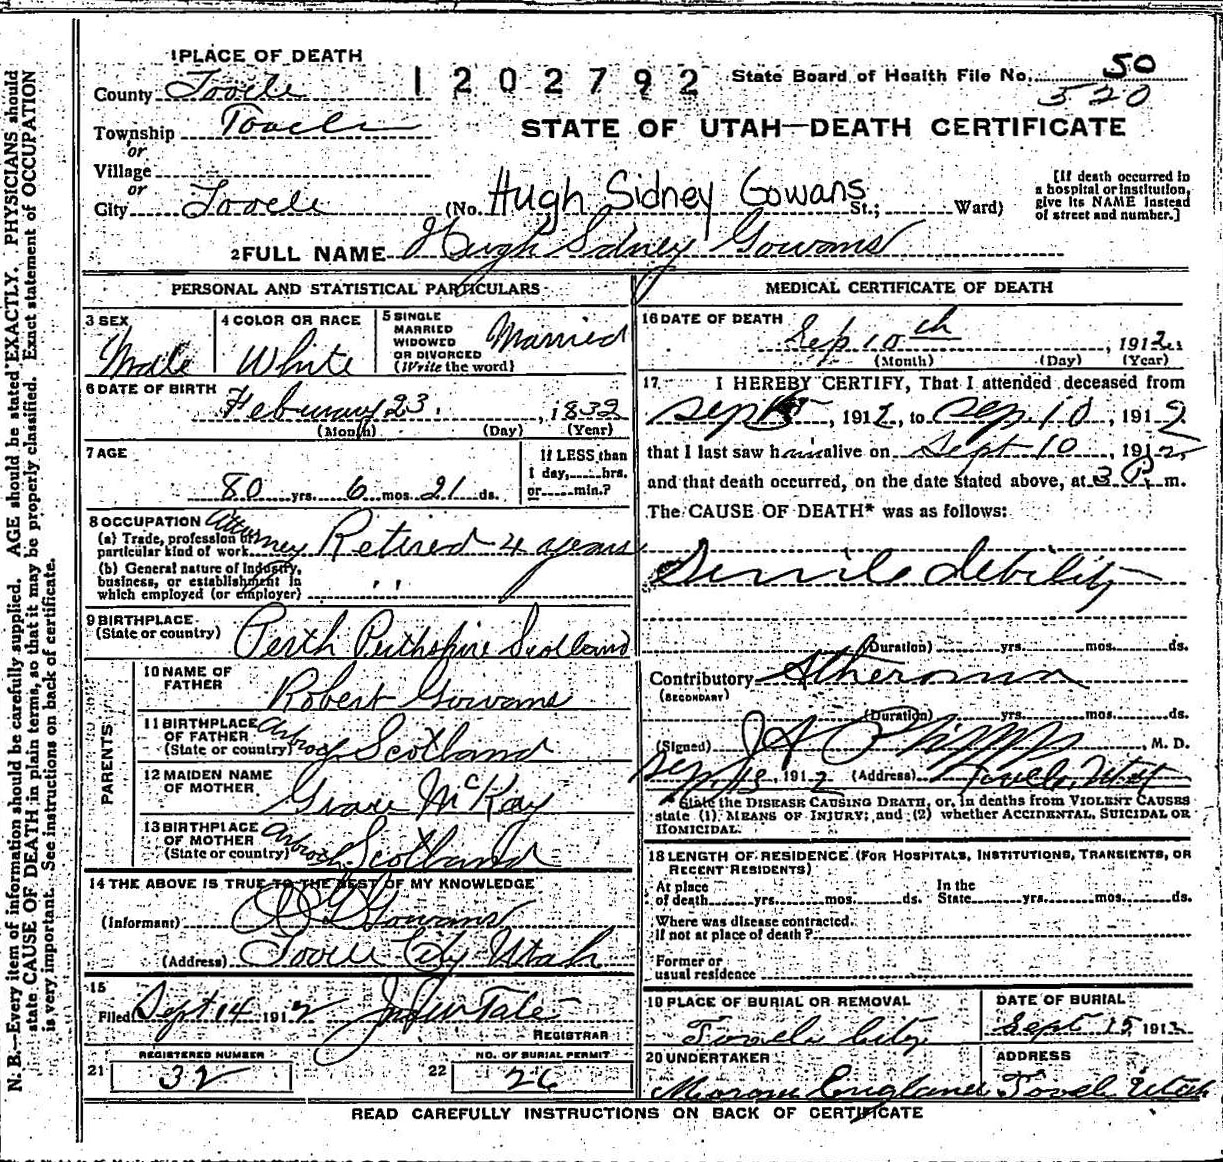 1 PLACE OF DEATH
County Tooele
1202792
State Board of Health File No. 50
520
Township Tooele
or
Village
or
City Tooele
STATE OF UTAH—DEATH CERTIFICATE
(No. Hugh Sidney Gowans St.; Ward)
[If death occurred in
a hospital or institution,
give its NAME instead
of street and number.]
2 FULL NAME Hugh Sidney Gowans
PERSONAL AND STATISTICAL PARTICULARS
3 SEX
Male
4 COLOR OR RACE
White
5 SINGLE
MARRIED
WIDOWED
OR DIVORCED
(Write the word)
Married
6 DATE OF BIRTH
February 23, 1832
(Month) (Day) (Year)
7 AGE
80 yrs. 6 mos. 21 ds.
If LESS than
1 day, hrs.
or min.?
8 OCCUPATION
(a) Trade, profession or
particular kind of work
Attorney Retired 4 years
(b) General nature of Industry,
business, or establishment in
which employed (or employer) " "
9 BIRTHPLACE
(State or country)
Perth Perthshire Scotland
PARENTS
10 NAME OF
FATHER
Robert Gowans
11 BIRTHPLACE
OF FATHER
(State or country)
Scotland
12 MAIDEN NAME
OF MOTHER
Grace McKay
13 BIRTHPLACE
OF MOTHER
(State or country)
Scotland
14 THE ABOVE IS TRUE TO THE BEST OF MY KNOWLEDGE
(Informant) Gowans
(Address) Tooele City Utah
15
Filed Sept 14 1912
REGISTRAR
REGISTERED NUMBER
21 32
NO. OF BURIAL PERMIT
22 26
MEDICAL CERTIFICATE OF DEATH
16 DATE OF DEATH
Sep 10th, 1912.
(Month) (Day) (Year)
17 I HEREBY CERTIFY, That I attended deceased from
Sept, 1912, to Sep. 10, 1912
that I last saw him alive on Sept 10, 1912
and that death occurred, on the date stated above, at 3 P. m.
The CAUSE OF DEATH* was as follows:
Sinnile debility
(Duration) yrs. mos. ds.
Contributory Atheroma
(SECONDARY)
(Duration) yrs. mos. ds.
(Signed) J A Phipps, M. D.
Sep 13, 1912 (Address) Tooele, Utah
*State the DISEASE CAUSING DEATH, or, in deaths from VIOLENT CAUSES
state (1) MEANS OF INJURY; and (2) whether ACCIDENTAL, SUICIDAL OR
HOMICIDAL.
18 LENGTH OF RESIDENCE (FOR HOSPITALS, INSTITUTIONS, TRANSIENTS, OR
RECENT RESIDENTS)
At place
of death yrs. mos. ds.
In the
State yrs. mos. ds.
Where was disease contracted.
If not at place of death?
Former or
usual residence
19 PLACE OF BURIAL OR REMOVAL
Tooele City
DATE OF BURIAL
Sept 15 1912
20 UNDERTAKER
England
ADDRESS
Tooele Utah
READ CAREFULLY INSTRUCTIONS ON BACK OF CERTIFICATE
N. B.—Every item of information should be carefully supplied. AGE should be stated EXACTLY. PHYSICIANS should
state CAUSE OF DEATH in plain terms, so that it may be properly classified. Exact statement of OCCUPATION
is very important. See instructions on back of certificate.